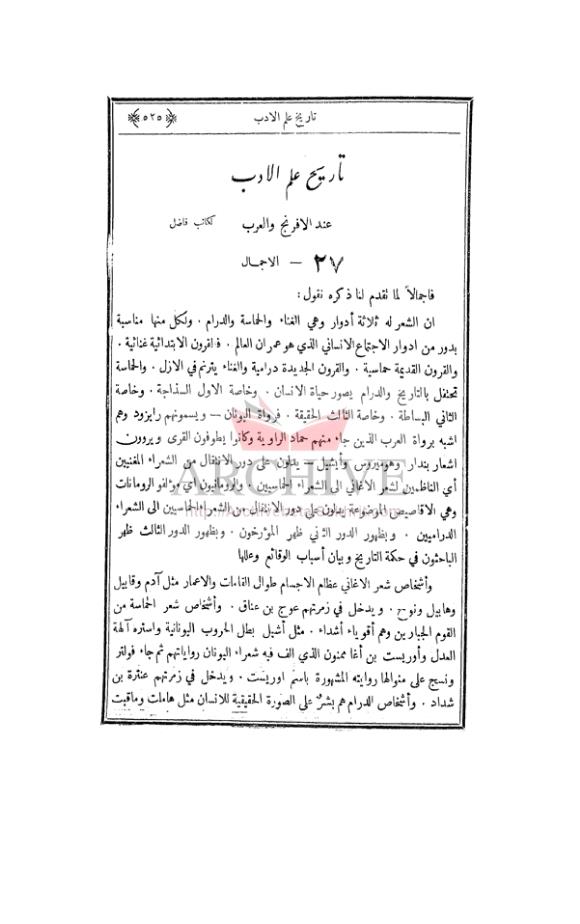 تاريخ علم الادب ﴿٥٢٥﴾
تاريخ علم الادب
عند الافرنج والعرب لكاتب فاضل
٢٧ – الاجمال
فاجمالاً لما تقدم لنا ذكره نقول :
ان الشعر له ثلاثة أدوار وهي الغناء والحماسة والدرام . ولكل منها مناسبة
بدور من ادوار الاجتماع الانساني الذي هو عمران العالم . فالقرون الابتدائية غنائية .
والقرون القديمة حماسية . والقرون الجديدة درامية والغناء يترنم في الازل . والحماسة
تحتفل بالتاريخ والدرام يصور حياة الانسان . وخاصة الاول السذاجة . وخاصة
الثاني البساطة . وخاصة الثالث الحقيقة . فرواة اليونان – ويسمونهم رابزود وهم
اشبه برواة العرب الذين جاء منهم حماد الراوية وكانوا يطوفون القرى ويروون
اشعار بندار وهوميروس وأيشيل – يدلون على دور الانتقال من الشعراء المغنيين
أي الناظمين لشعر الاغاني الى الشعراء الحماسيين . والرومانيون اي مؤلفو الرومانات
وهي الاقاصيص الموضوعة يدلون على دور الانتقال من الشعراء الحماسيين الى الشعراء
الدراميين . وبظهور الدور الثاني ظهر المؤرخون . وبظهور الدور الثالث ظهر
الباحثون في حكمة التاريخ وبيان أسباب الوقائع وعللها
وأشخاص شعر الاغاني عظام الاجسام طوال القامات والاعمار مثل آدم وقابيل
وهابيل ونوح . ويدخل في زمرتهم عوج بن عناق . وأشخاص شعر الحماسة من
القوم الجبارين وهم أقوياء أشداء . مثل أشيل بطل الحروب اليونانية واستره آلهة
العدل وأوريست بن أغا ممنون الذي الف فيه شعراء اليونان رواياتهم ثم جاء فولتر
ونسج على منوالها روايته المشهورة باسم اوريست . ويدخل في زمرتهم عنترة بن
شداد . وأشخاص الدرام هم بشر على الصورة الحقيقية للانسان مثل هاملت وماقبت
ARCHIVE